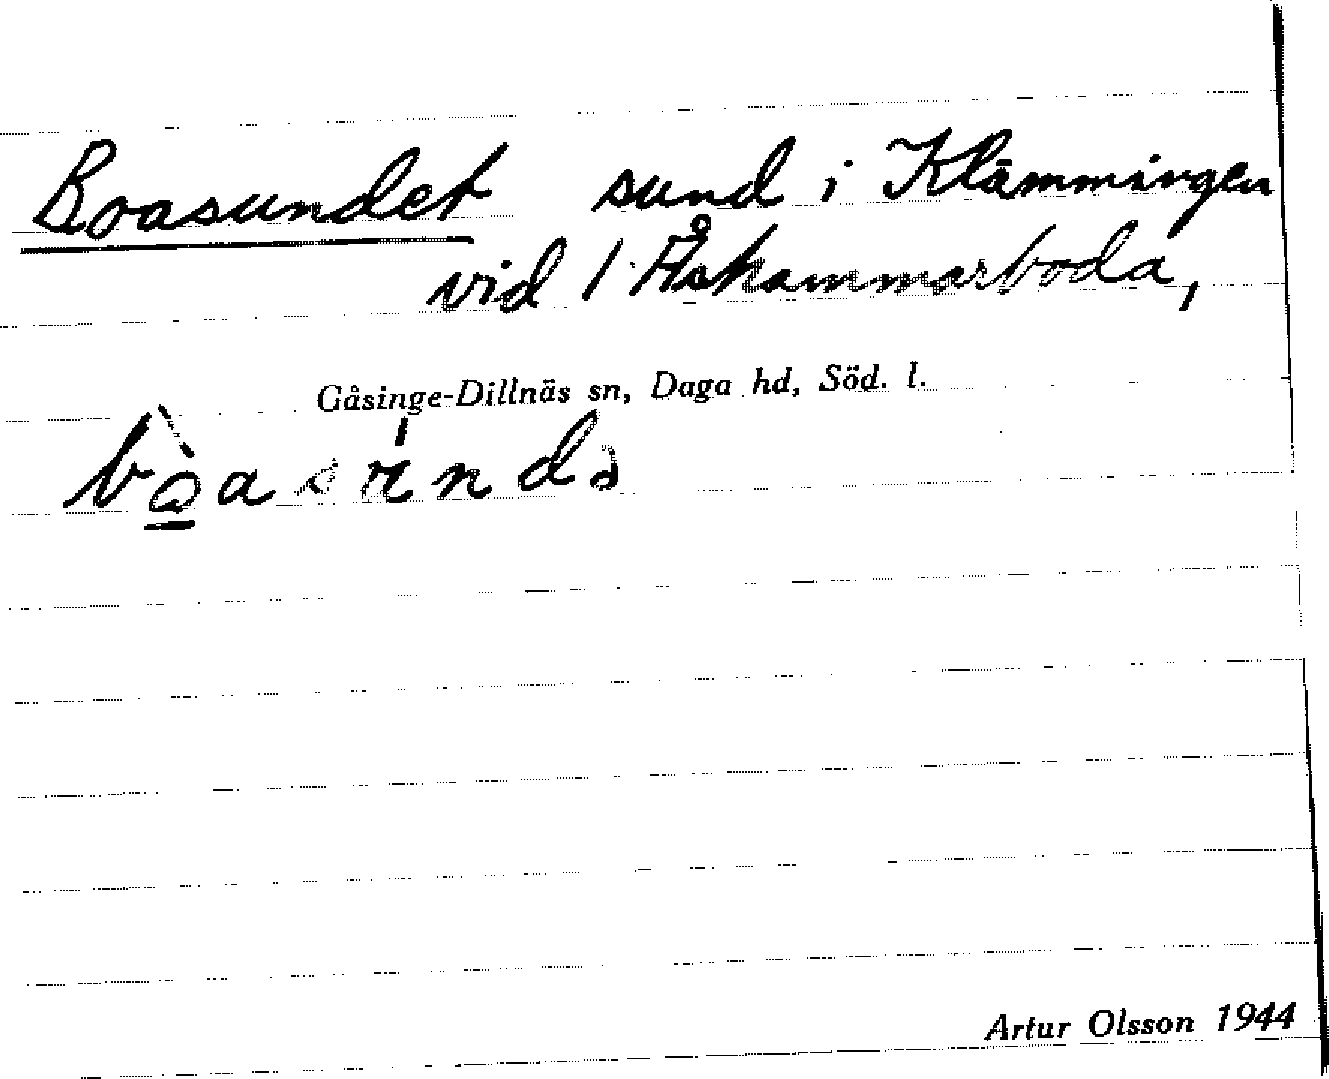 Boasundet sund i Klämmingen
vid l. Åskammarboda,
Gåsinge-Dillnäs sn, Daga hd, Söd. l.
Artur Olsson 1944